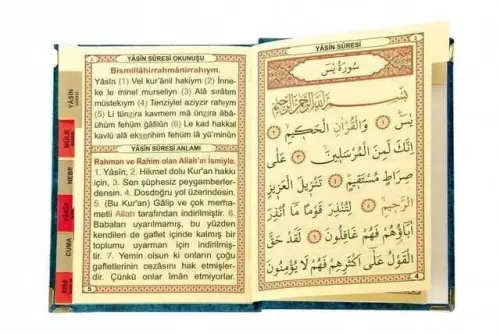 YÂSİN SÛRESİ OKUNUŞU
Bismillâhirrahmânirrahıym.
Yâsîn (1) Vel kur'ânil hakiym (2) İnne-
ke le minel murseliyn (3) Alâ sırâtım
müstekiym (4) Tenziylel aziyzir rahıym
(5) Li tünzira kavmem mâ ünzira âbâ-
ühüm fehüm gâfilûn (6) Le kad hakkal
kavlü alâ ekserihim fehüm lâ yü'minûn
YÂSİN SÛRESİ ANLAMI
Rahman ve Rahim olan Allah'ın İsmiyle.
1. Yâsîn, 2. Hikmet dolu Kur'an hakkı
için, 3. Sen şüphesiz peygamberler-
densin. 4. Dosdoğru yol üzerindesin.
5. (Bu Kur'an) Gâlip ve çok merha-
metli Allah tarafından indirilmiştir. 6.
Babaları uyarılmamış, bu yüzden
kendileri de gaflet içinde kalmış bir
toplumu uyarman için indirilmiş-
tir. 7. Yemin olsun ki onların çoğu
gafletlerinin cezasını hak etmişler-
dir. Çünkü onlar îman etmiyorlar.
5
YÂSİN
MÜLK
NEBE
CUMA
YÂSİN SÛRESİ
سُورَةُ يٰسٓ
بِسْمِ اللّٰهِ الرَّحْمٰنِ الرَّحِيمِ
يٰسٓ ﴿١﴾ وَالْقُرْاٰنِ الْحَكِيمِ ﴿٢﴾
اِنَّكَ لَمِنَ الْمُرْسَلِينَ ﴿٣﴾ عَلٰى
صِرَاطٍ مُسْتَقِيمٍ ﴿٤﴾ تَنْزِيلَ الْعَزِيزِ
الرَّحِيمِ ﴿٥﴾ لِتُنْذِرَ قَوْمًا مَا اُنْذِرَ
اٰبَاؤُهُمْ فَهُمْ غَافِلُونَ ﴿٦﴾ لَقَدْ حَقَّ
الْقَوْلُ عَلٰى اَكْثَرِهِمْ فَهُمْ لَا يُؤْمِنُونَ
4